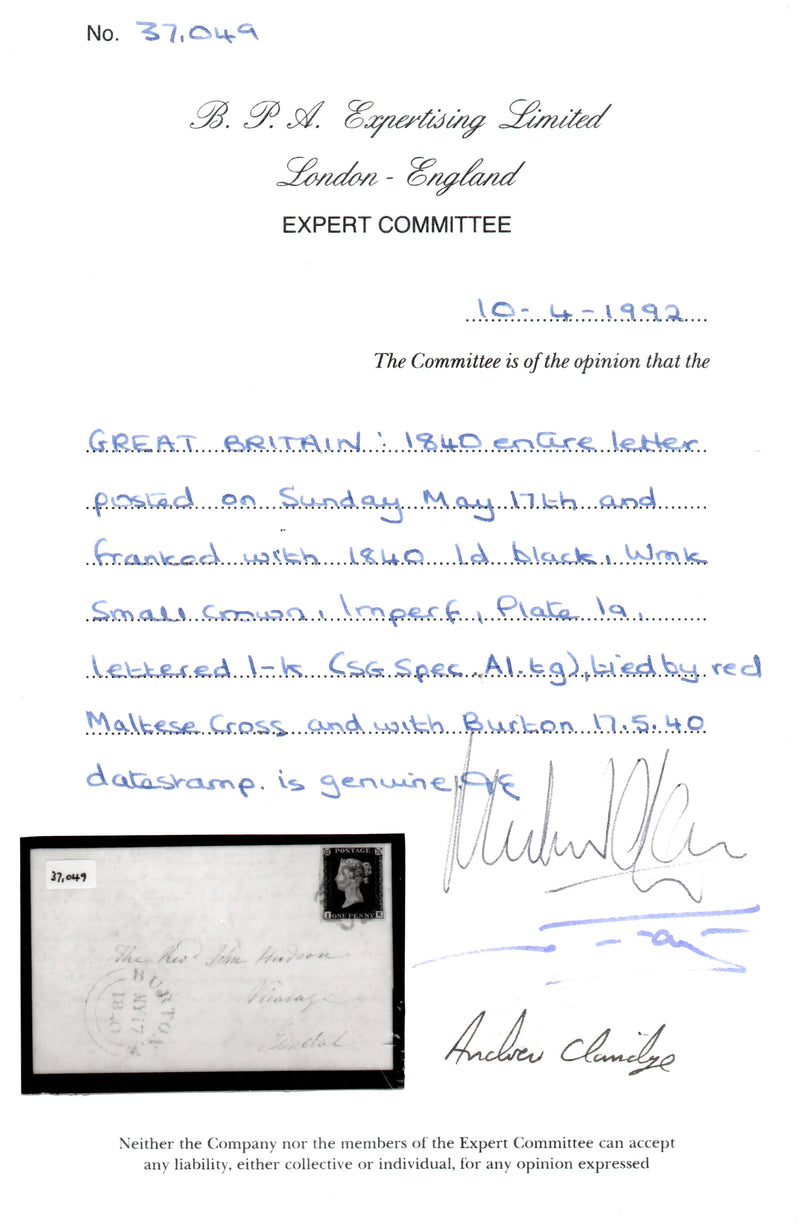 No. 37,049
B. P. A. Expertising Limited
London - England
EXPERT COMMITTEE
10-4-1992
The Committee is of the opinion that the
GREAT BRITAIN : 1840 entire letter
posted on Sunday May 17th and
franked with 1840 1d black, Wmk
Small crown, Imperf, Plate 1a,
lettered I-K (SG Spec. A1.tg), tied by red
Maltese Cross and with Burton 17.5.40
datestamp. is genuine.
37,049
POSTAGE
I ONE PENNY K
The Revd John Hudson
Vicarage
Kendal
BURTON
MY 17
1840
Andrew Claridge
Neither the Company nor the members of the Expert Committee can accept
any liability, either collective or individual, for any opinion expressed